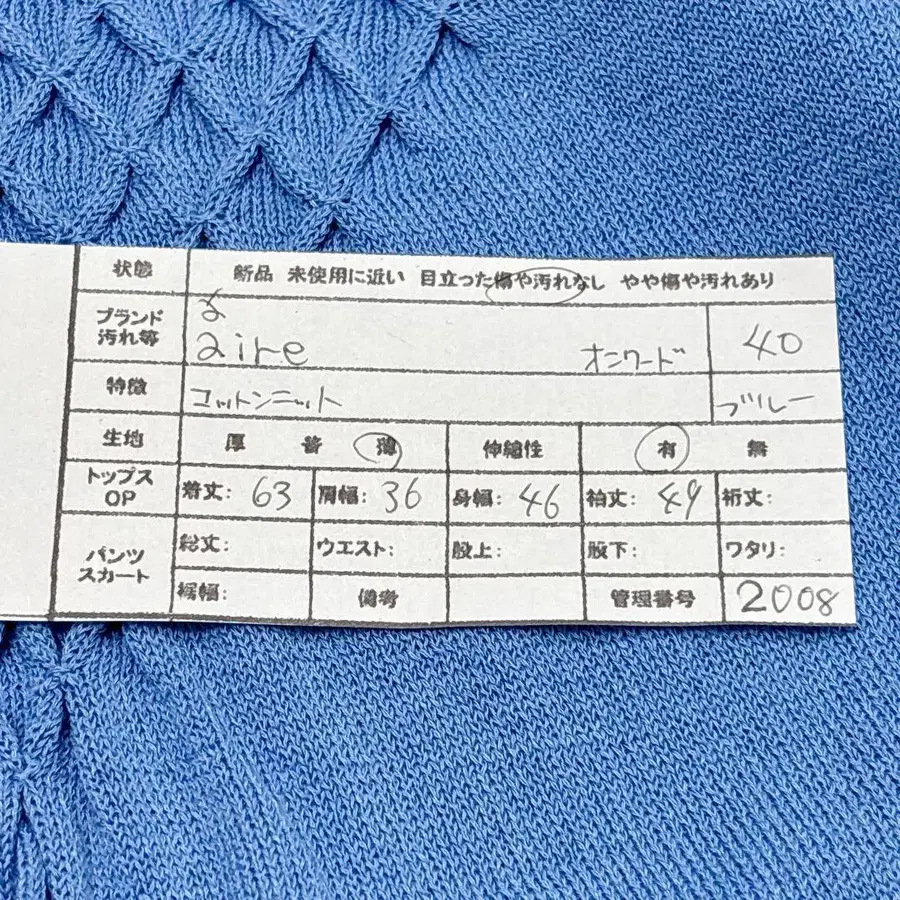 状態 新品 未使用に近い 目立った傷や汚れなし やや傷や汚れあり
ブランド
汚れ等 aire オンワード 40
特徴 コットンニット ブルー
生地 厚 普 薄 伸縮性 有 無
トップス
OP 着丈: 63 肩幅: 36 身幅: 46 袖丈: 49 裄丈:
パンツ
スカート 総丈: ウエスト: 股上: 股下: ワタリ:
裾幅: 備考 管理番号 2008